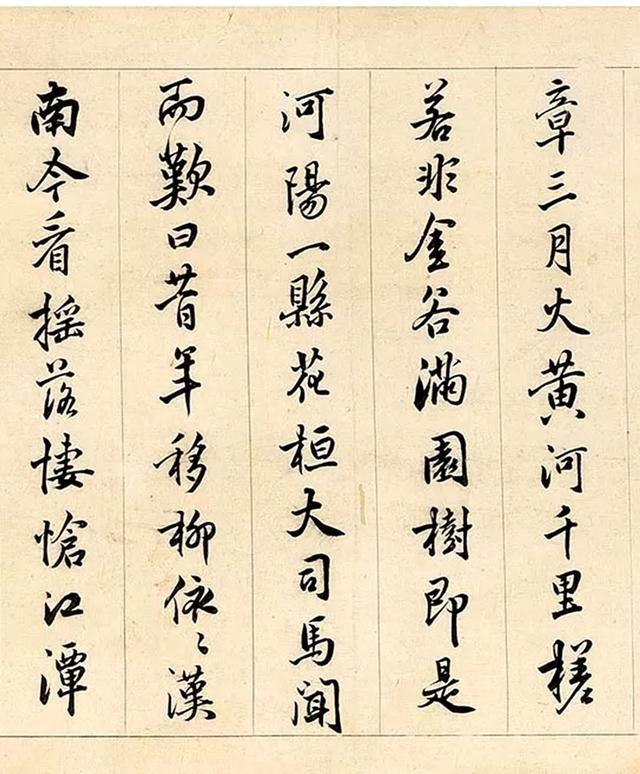 章三月火黃河千里槎
若非金谷滿園樹即是
河陽一縣花桓大司馬聞
而歎曰昔年移柳依〻漢
南今看搖落悽愴江潭